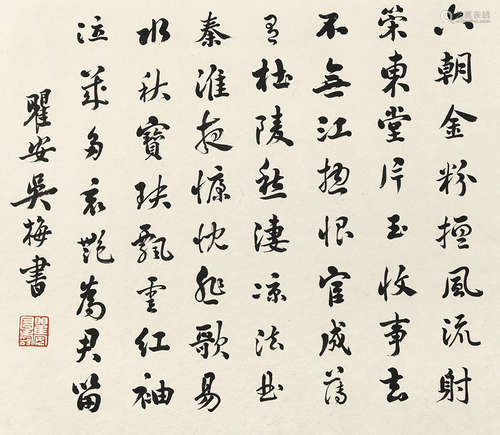 六朝金粉擅風流射
策東堂片玉收事去
不無江揔恨官成薄
有杜陵愁淒涼法曲
秦淮夜慷慨悲歌易
水秋寶玦飄零紅袖
泣幾多哀艷為君留
瞿安吳梅書